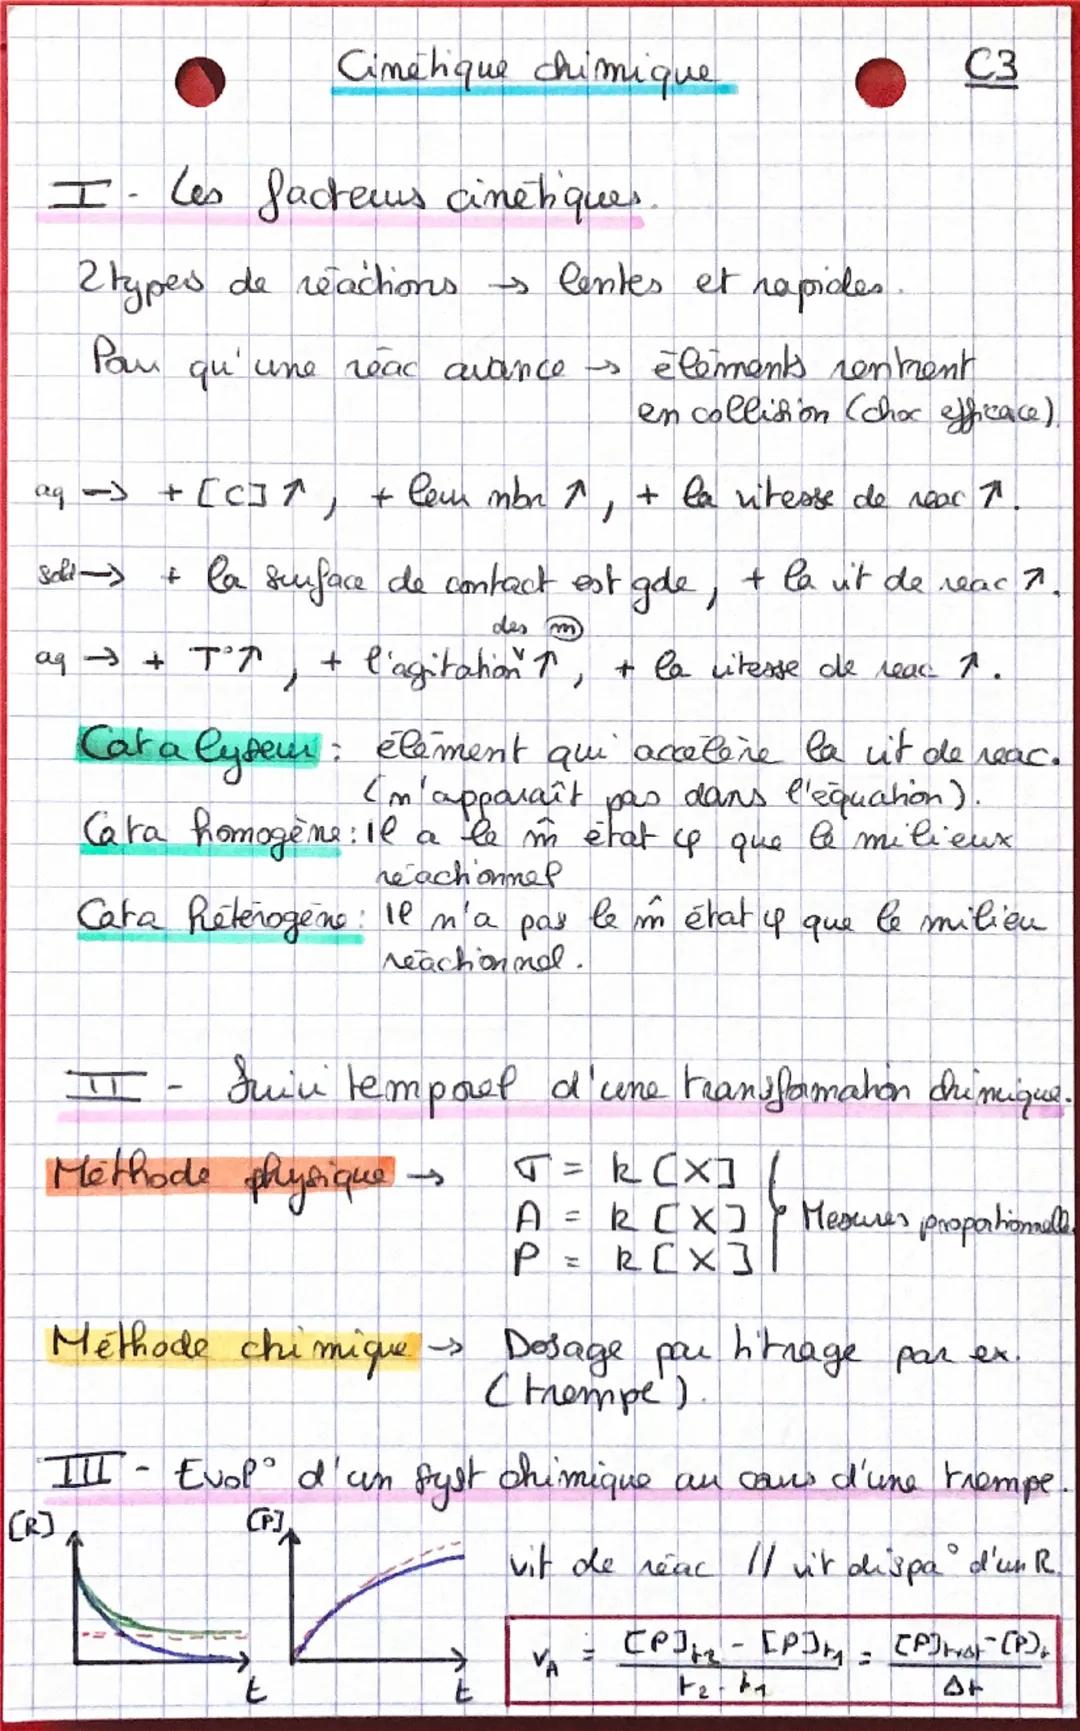 Cinétique chimique
C3
I - Les facteurs cinétiques.
2 types de réactions → lentes et rapides.
Pour qu'une réac avance → éléments rentrent
en collision (choc efficace)
aq → + [C] ↑, + leur nbr ↑, + la vitesse de reac ↑.
solid → + la surface de contact est gde, + la vit de reac ↗.
des (m)
aq → + T° ↗, + l'agitation ↑, + la vitesse de reac ↑.
Catalyseur : élément qui accélère la vit de reac.
(n'apparaît pas dans l'équation).
Cata homogène : il a le m̂ état φ que le milieux
réactionnel
Cata hétérogène : il n'a pas le m̂ état φ que le milieu
réactionnel.
II - Suivi temporel d'une transformation chimique.
Méthode physique → σ = k [X]
A = k [X] } Mesures proportionnelle
P = k [X]
Méthode chimique → Dosage par titrage par ex.
(trempe).
III - Evol° d'un syst chimique au cours d'une trempe.
[R]
[P]
t
t
vit de réac // vit dispa° d'un R
v_A = [P]t2 - [P]t1 / t2 - t1 = [P]t+Δt - [P]t / Δt